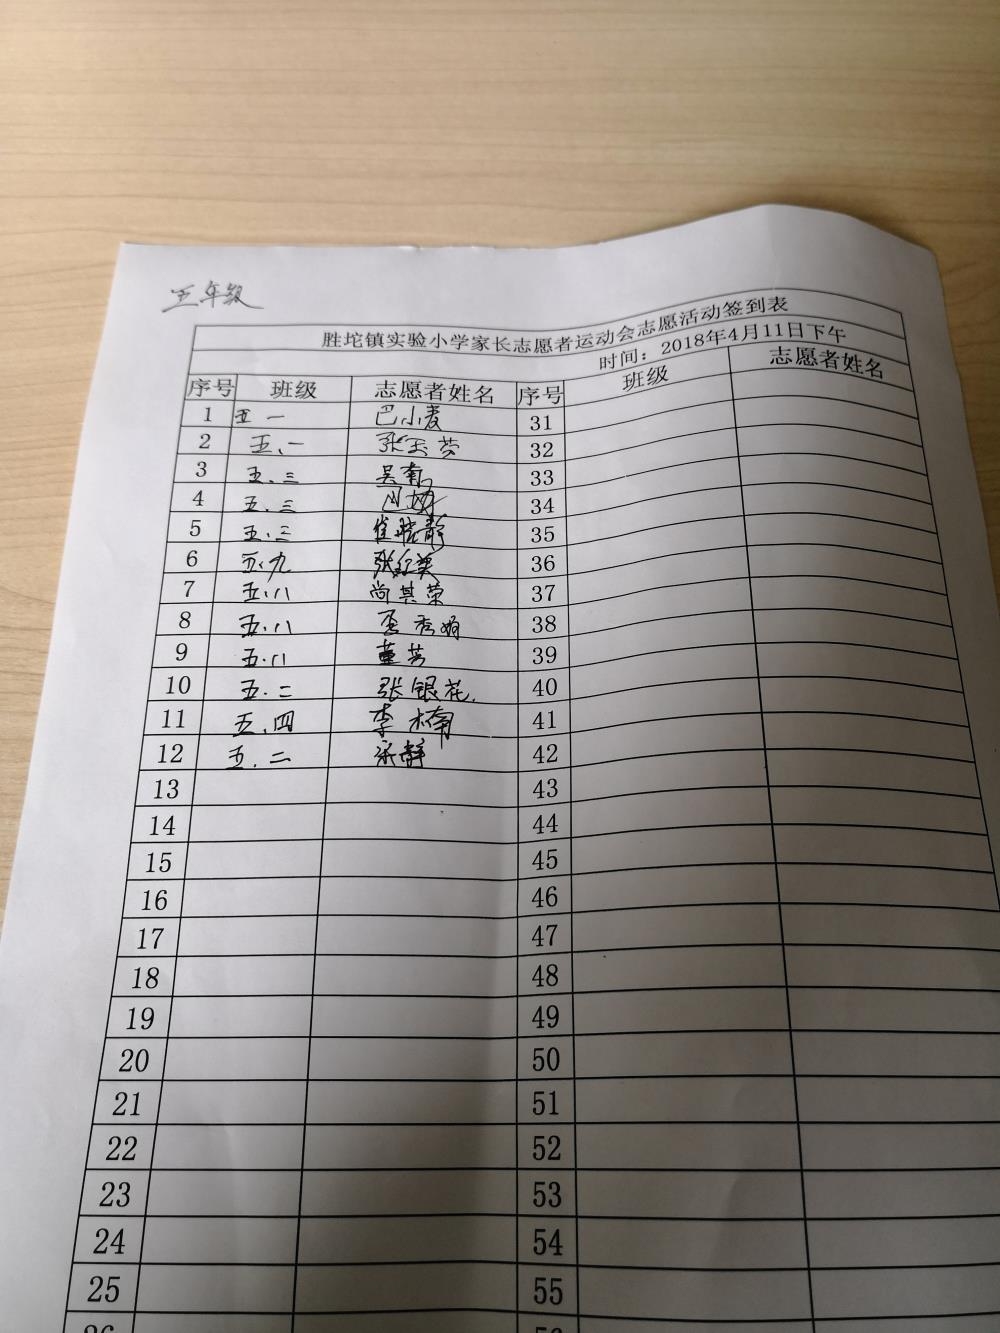 五年级
胜坨镇实验小学家长志愿者运动会志愿活动签到表
时间：2018年4月11日下午
序号 班级 志愿者姓名 序号 班级 志愿者姓名
1 五 一 巴小麦 31
2 五.一 张玉芸 32
3 五.三 吴南 33
4 五.三 34
5 五.三 崔晓静 35
6 五.九 张红美 36
7 五.八 尚其荣 37
8 五.八 秀娟 38
9 五.八 董芳 39
10 五.二 张银花. 40
11 五.四 李楠 41
12 五.二 宋静 42
13 43
14 44
15 45
16 46
17 47
18 48
19 49
20 50
21 51
22 52
23 53
24 54
25 55